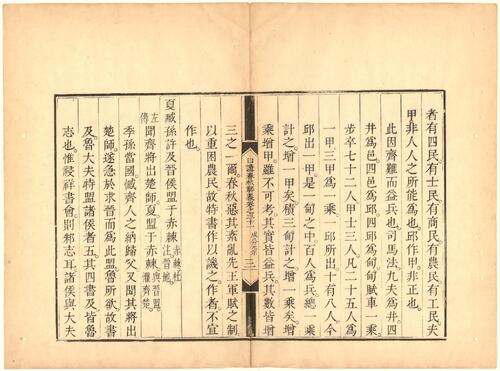 者有四民有士民有商民有農民有工民夫
甲非人人之所能爲也邱作甲非正也
此因齊難而益兵也司馬法九夫爲井四
井爲邑四邑爲邱四邱爲甸甸賦車一乘
步卒七十二人甲士三人凡二十五人爲
一甲三甲爲一乘一邱所出十有八人今
邱出一甲是一甸之中百人爲兵總一乘
計之增一甲矣積三甸計之增一乘矣增
乘增甲雖不可考其實皆益兵其數皆增
日講春秋解義卷之三十一 成公元年 三
三之一爾春秋惡其紊亂先王軍賦之制
以重困農民故特書作以譏之作者不宜
作也
夏臧孫許及晉侯盟于赤棘赤棘杜注晉地
左傳聞齊將出楚師夏盟于赤棘與晉盟懼齊楚
季孫當國憾齊人之納歸父又聞其將出
楚師遂急於求晉而爲此盟魯所欲故書
及魯大夫特盟諸侯者五其四書及皆魯
志也惟祲祥書會則邾志耳諸侯與大夫